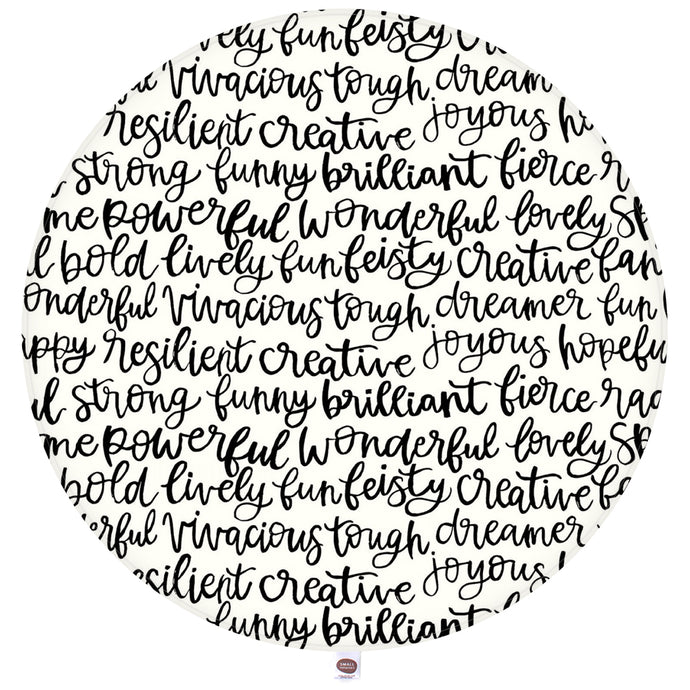 lively fun feisty creative
vivacious tough dreamer
resilient creative joyous ho
strong funny brilliant fierce ra
me powerful wonderful lovely sp
l bold lively fun feisty creative fan
onderful vivacious tough dreamer fun
appy resilient creative joyous hopefu
ul strong funny brilliant fierce rad
me powerful wonderful lovely sp
bold lively fun feisty creative fa
erful vivacious tough dreamer
resilient creative joyous h
funny brilliant fierce
SMALL